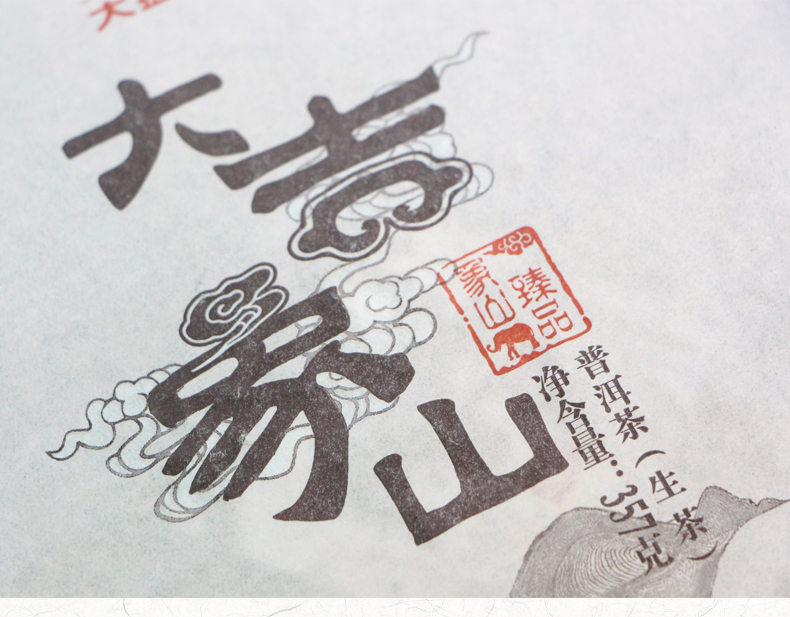 大吉
象山
象山
臻品
普洱茶(生茶)
净含量:357克